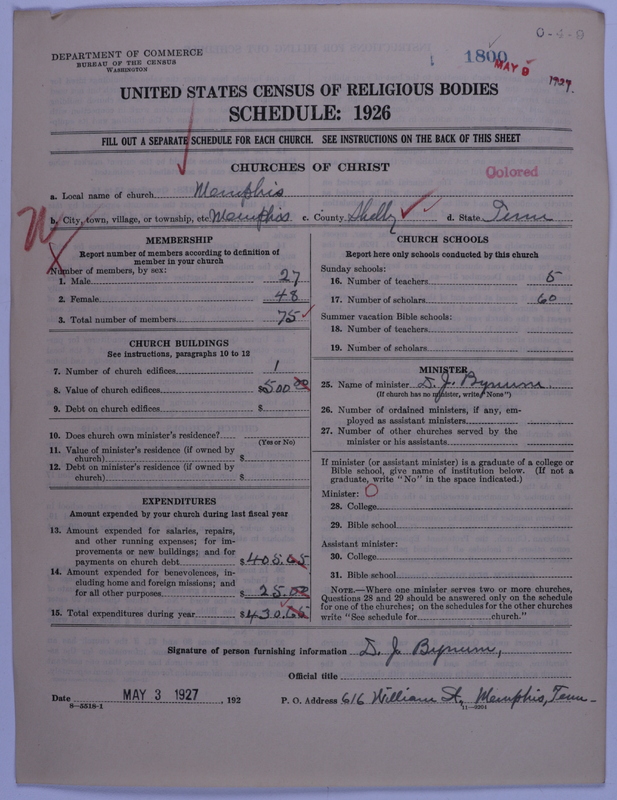 0-4-9
DEPARTMENT OF COMMERCE
BUREAU OF THE CENSUS
WASHINGTON
1800
MAY 9 1927.
UNITED STATES CENSUS OF RELIGIOUS BODIES
SCHEDULE: 1926
FILL OUT A SEPARATE SCHEDULE FOR EACH CHURCH. SEE INSTRUCTIONS ON THE BACK OF THIS SHEET
CHURCHES OF CHRIST
Colored
a. Local name of church Memphis
b. City, town, village, or township, etc Memphis c. County Shelby d. State Tenn
N
MEMBERSHIP
Report number of members according to definition of
member in your church
Number of members, by sex:
1. Male 27
2. Female 48
3. Total number of members 75
CHURCH BUILDINGS
See instructions, paragraphs 10 to 12
7. Number of church edifices 1
8. Value of church edifices $500.00
9. Debt on church edifices $
10. Does church own minister's residence?
(Yes or No)
11. Value of minister's residence (if owned by
church) $
12. Debt on minister's residence (if owned by
church) $
EXPENDITURES
Amount expended by your church during last fiscal year
13. Amount expended for salaries, repairs,
and other running expenses; for im-
provements or new buildings; and for
payments on church debt $405.65
14. Amount expended for benevolences, in-
cluding home and foreign missions; and
for all other purposes $25.00
15. Total expenditures during year $430.65
CHURCH SCHOOLS
Report here only schools conducted by this church
Sunday schools:
16. Number of teachers 5
17. Number of scholars 60
Summer vacation Bible schools:
18. Number of teachers
19. Number of scholars
MINISTER
25. Name of minister D. J. Bynum
(If church has no minister, write "None")
26. Number of ordained ministers, if any, em-
ployed as assistant ministers
27. Number of other churches served by the
minister or his assistants
If minister (or assistant minister) is a graduate of a college or
Bible school, give name of institution below. (If not a
graduate, write "No" in the space indicated.)
Minister: O
28. College
29. Bible school
Assistant minister:
30. College
31. Bible school
NOTE.—Where one minister serves two or more churches,
Questions 28 and 29 should be answered only on the schedule
for one of the churches; on the schedules for the other churches
write "See schedule for church."
Signature of person furnishing information D. J. Bynum,
Official title
Date MAY 3 1927, 192 P. O. Address 616 William St, Memphis, Tenn-
8-5518-1 11-9204